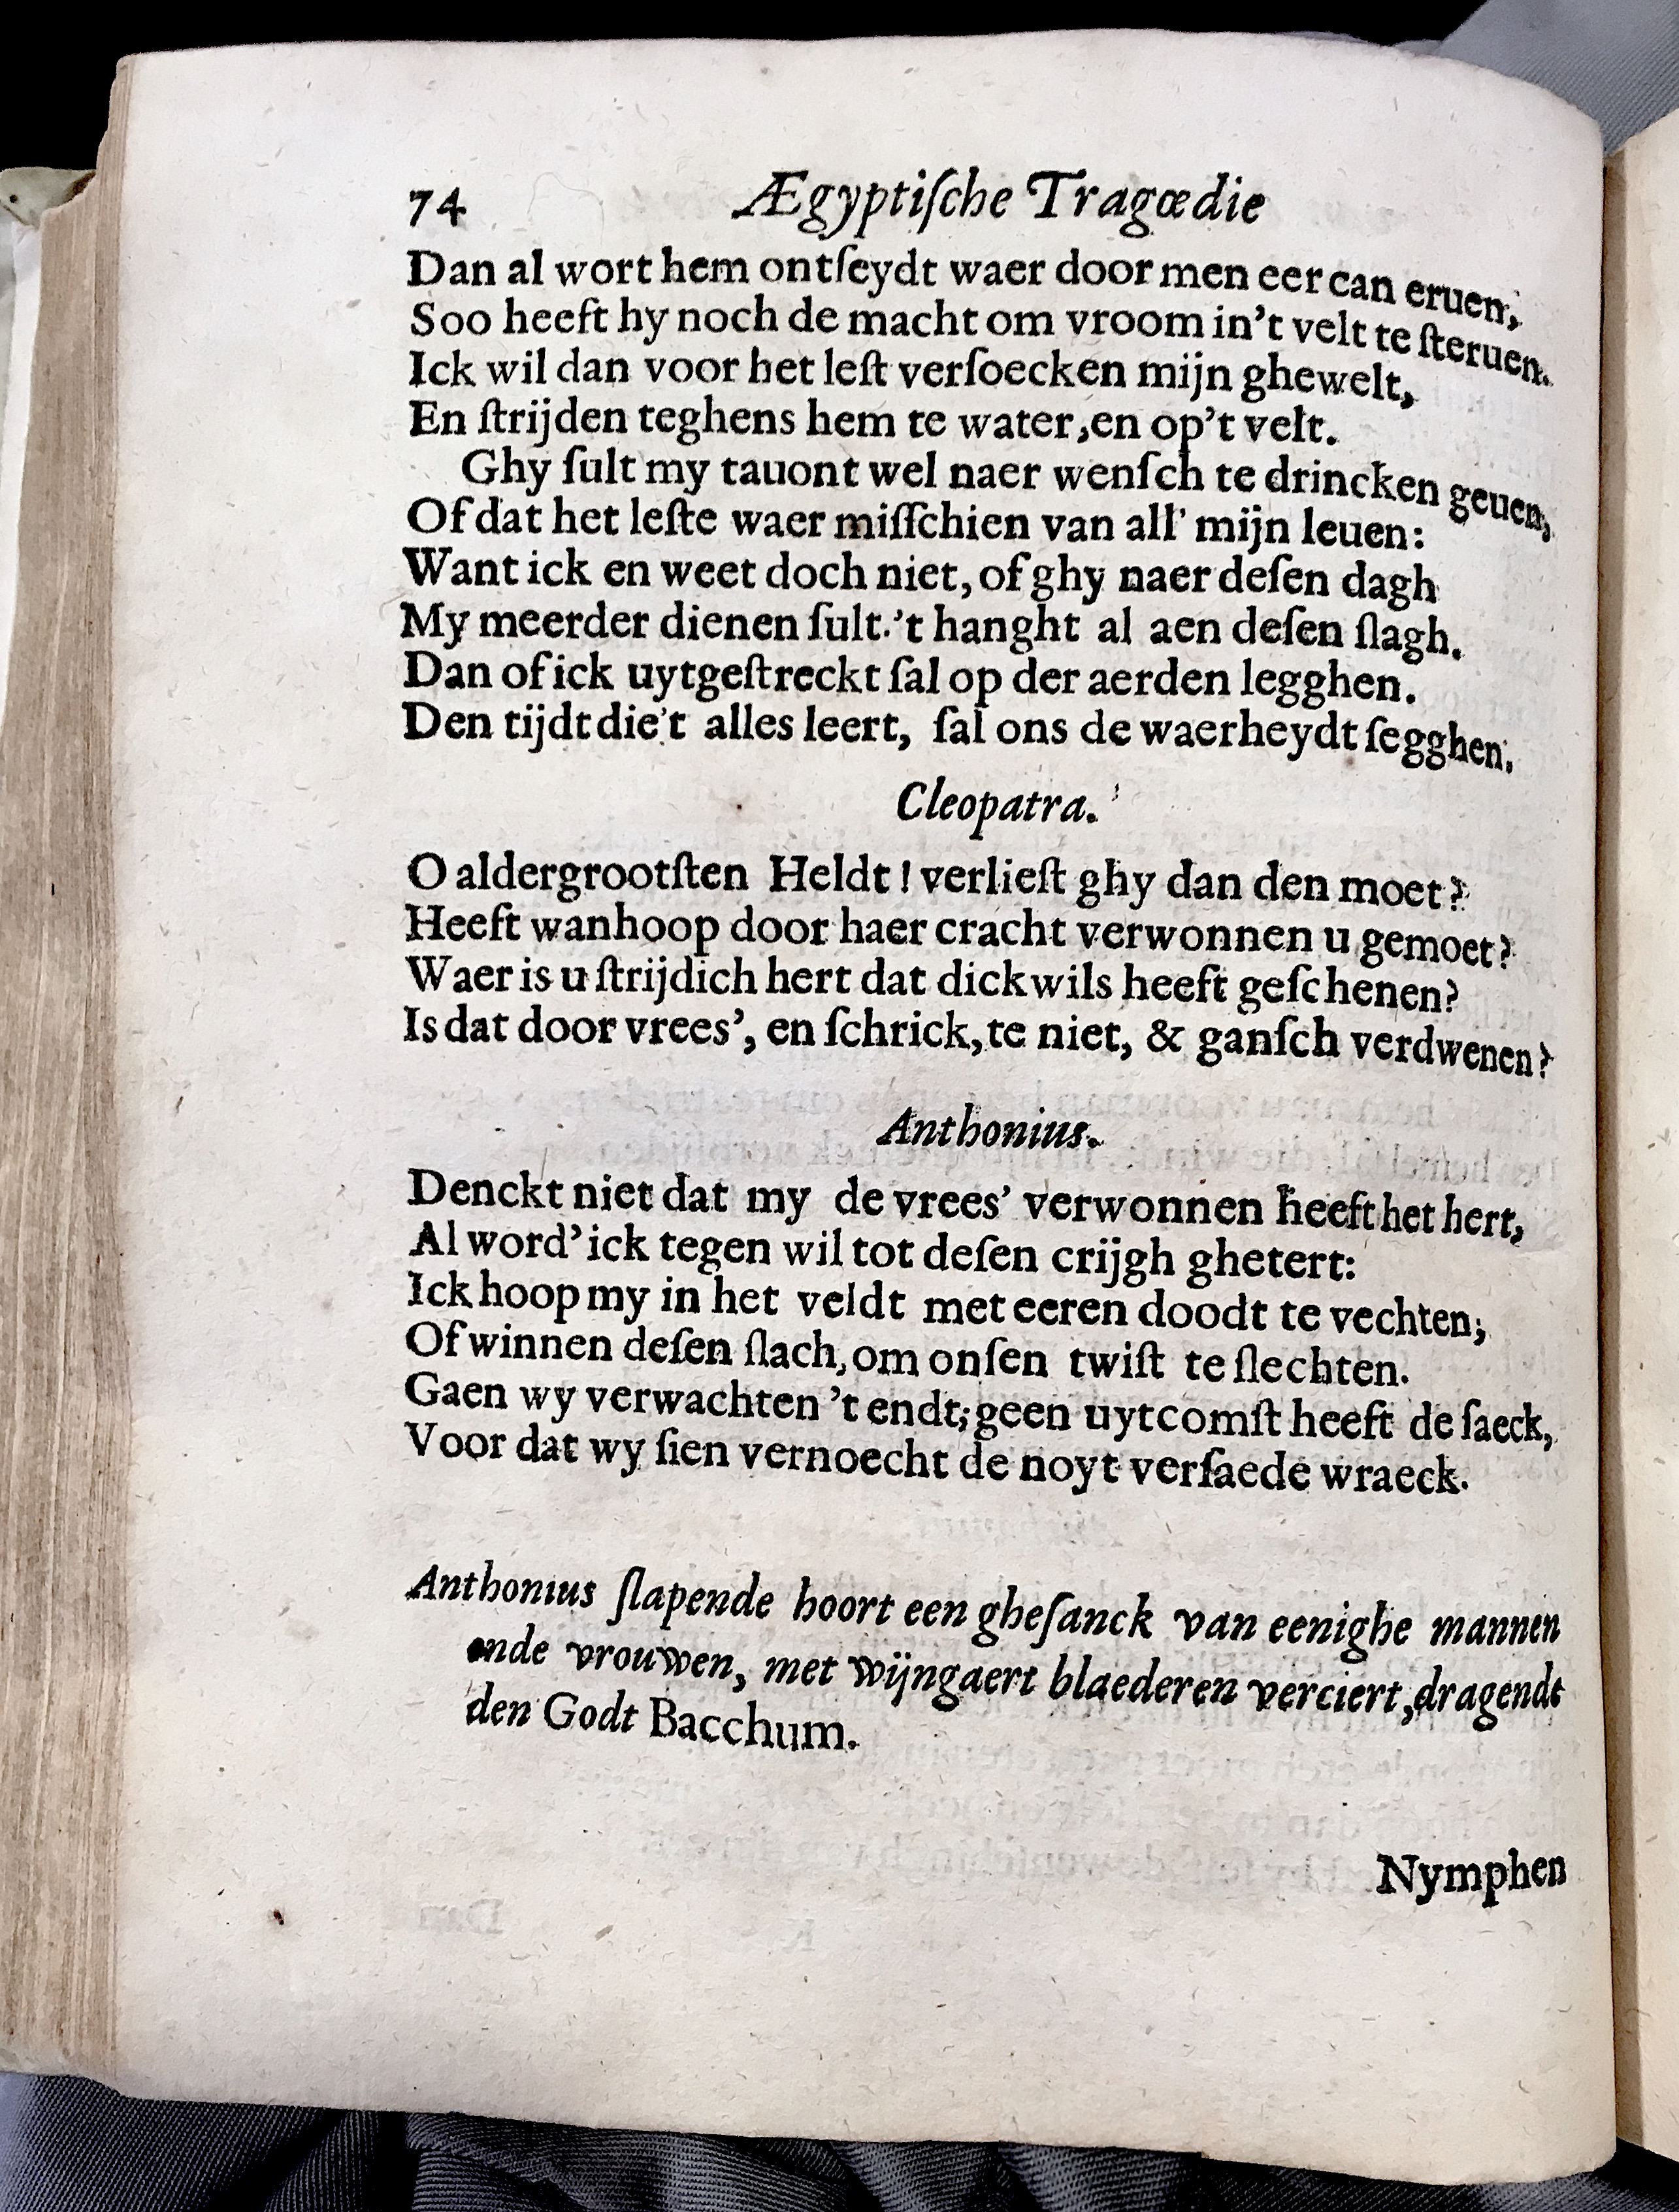 74 Ægyptiſche Tragœdie
Dan al wort hem ontſeydt waer door men eer can eruen,
Soo heeft hy noch de macht om vroom in't velt te ſteruen.
Ick wil dan voor het leſt verſoecken mijn ghewelt,
En ſtrijden teghens hem te water, en op't velt.
Ghy ſult my tauont wel naer wenſch te drincken geuen,
Of dat het leſte waer miſſchien van all' mijn leuen:
Want ick en weet doch niet, of ghy naer deſen dagh
My meerder dienen ſult. 't hanght al aen deſen ſlagh.
Dan of ick uytgeſtreckt ſal op der aerden legghen.
Den tijdt die't alles leert, ſal ons de waerheydt ſegghen.
Cleopatra.
O aldergrootſten Heldt! verlieſt ghy dan den moet?
Heeft wanhoop door haer cracht verwonnen u gemoet?
Waer is u ſtrijdich hert dat dickwils heeft geſchenen?
Is dat door vrees', en ſchrick, te niet, & ganſch verdwenen?
Anthonius.
Denckt niet dat my de vrees' verwonnen heeft het hert,
Al word' ick tegen wil tot deſen crijgh ghetert:
Ick hoop my in het veldt met eeren doodt te vechten;
Of winnen deſen ſlach, om onſen twiſt te ſlechten.
Gaen wy verwachten 't endt; geen uytcomſt heeft de ſaeck,
Voor dat wy ſien vernoecht de noyt verſaede wraeck.
Anthonius ſlapende hoort een gheſanck van eenighe mannen
ende vrouwen, met wijngaert blaederen verciert, dragendt
den Godt Bacchum.
Nymphen